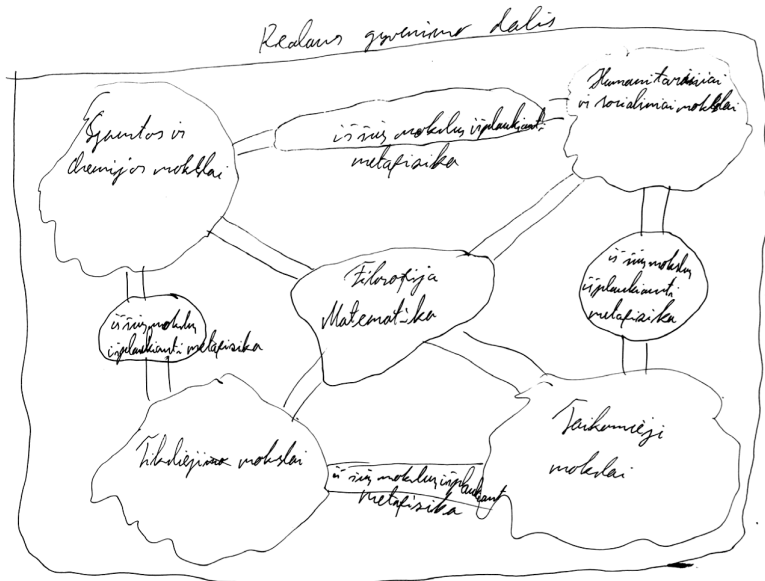 Realaus gyvenimo dalis
Gamtos ir
chemijos mokslai
iš šių mokslų išplaukianti
metafizika
Humanitariniai
ir socialiniai mokslai
Filosofija
Matematika
iš šių mokslų
išplaukianti metafizika
iš šių mokslų
išplaukianti
metafizika
Tikslieji mokslai
iš šių mokslų išplaukianti
metafizika
Taikomieji
mokslai